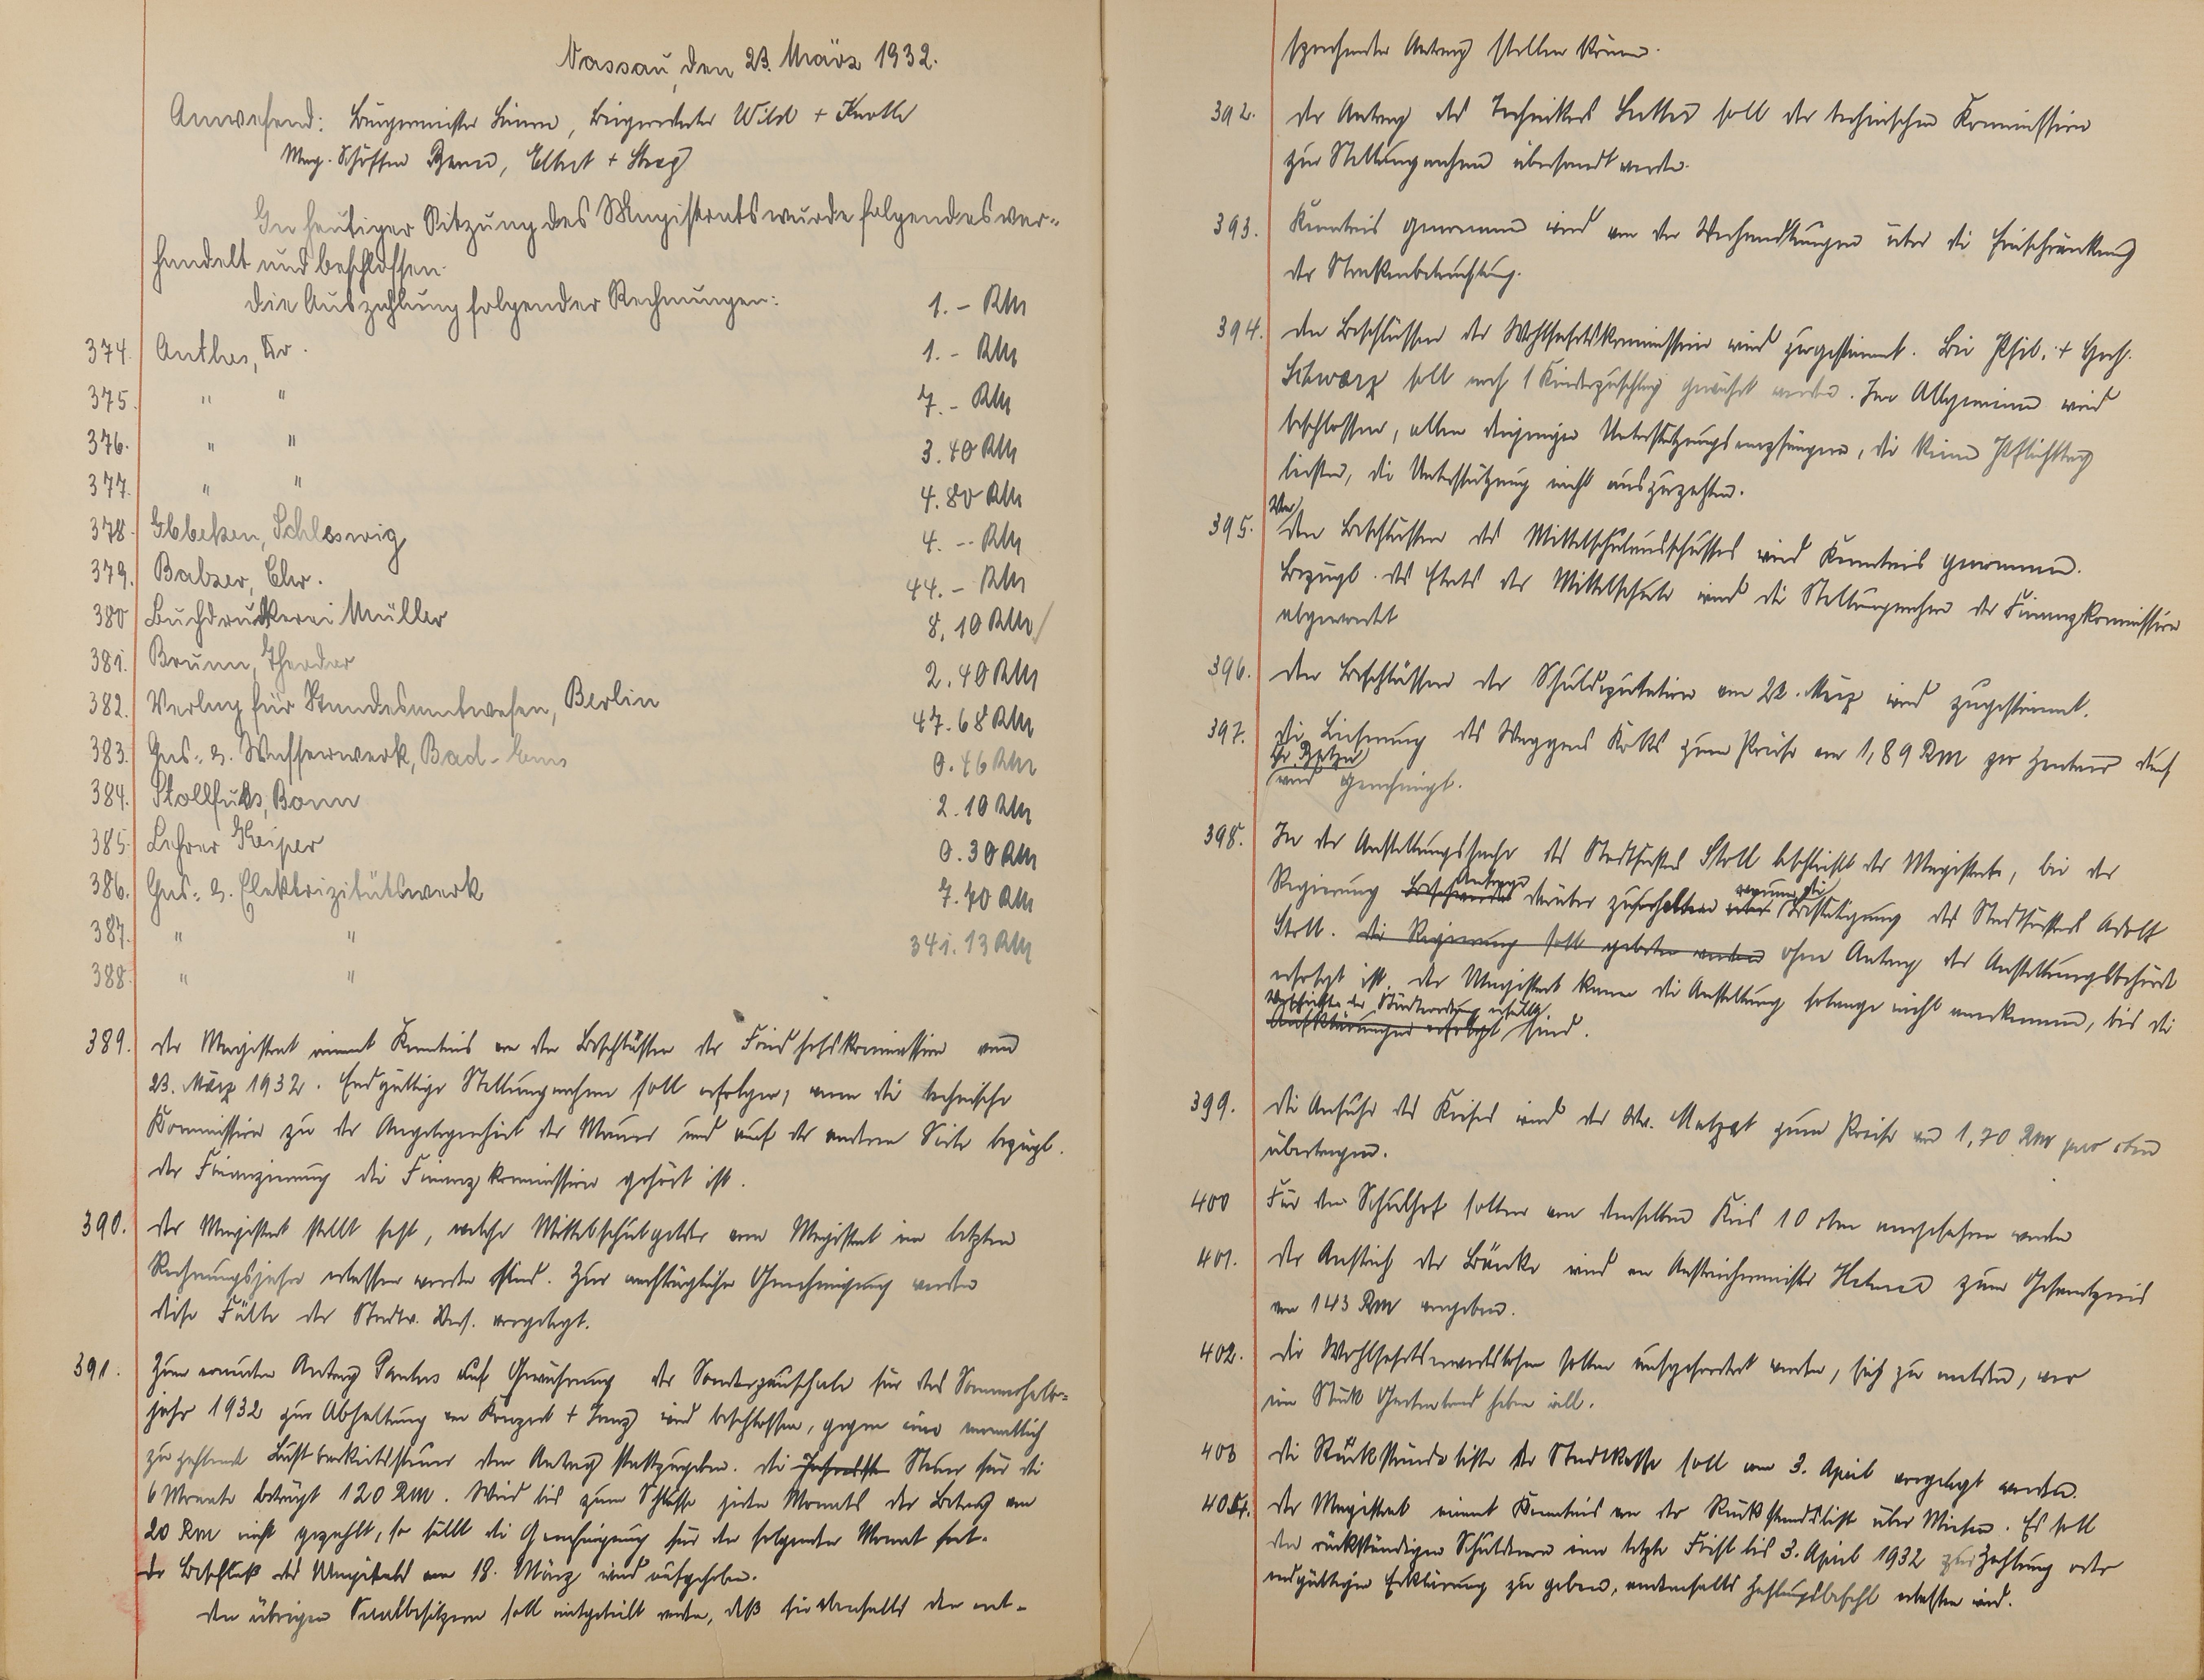 Nassau, den 23. März 1932.
Anwesend: Bürgermeister, Beigeordneter Wild + Knoth
Mag. Schöffen, Elbert + Strag
In heutiger Sitzung des Magistrats wurde folgendes ver-
handelt und beschlossen.
die Auszahlung folgender Rechnungen: 1.- RM
374. Anthes, Kr. 1.- RM
375. " " 7.- RM
376. " " 3.40 RM
377. " " 4.80 RM
378. Ebbeken, Schleswig 4.-- RM
379. Balzer, Chr. 44.- RM
380 Buchdruckerei Müller 8,10 RM
381. Brunn, Theodor 2.40 RM
382. Verlag für Standesamtwesen, Berlin 47.68 RM
383. Gas- u. Wasserwerk, Bad-Ems 0.46 RM
384. Stollfuß, Bonn 2.10 RM
385. Lehrer Keiper 0.30 RM
386. Gas- u. Elektrizitätswerk 7.70 RM
387. " " 341.13 RM
388. " "
389. der Magistrat nimmt Kenntnis von den Beschlüssen der Friedhofskommission vom
23. März 1932. Endgültige Stellungnahme soll erfolgen, wenn die technische
Kommission zu der Angelegenheit der Mauer und auf der anderen Seite bezügl.
der Finanzierung die Finanzkommission gehört ist.
390. der Magistrat stellt fest, welche Mittelschulgelder vom Magistrat im letzten
Rechnungsjahr erlassen worden sind. Zur nachträglichen Genehmigung werden
diese Fälle der Stadtv. Vers. vorgelegt.
391. Zum erneuten Antrag auf Gewährung der Sonderpauschale für das Sommerhalb-
jahr 1932 zur Abhaltung von Konzert + Tanz wird beschlossen, gegen eine monatlich
zu zahlende Lustbarkeitssteuer dem Antrag stattzugeben. die Steuer für die
6 Monate beträgt 120 RM. Wird bis zum Schlusse jeden Monats der Betrag von
20 RM nicht gezahlt, so fällt die Genehmigung für den folgenden Monat fort.
Der Beschluß des Magistrats vom 18. März wird aufgehoben.
Den übrigen Saalbesitzern soll mitgeteilt werden, daß sie ebenfalls den ent-
sprechenden Antrag stellen können.
392. Der Antrag des Technikers soll der technischen Kommission
zur Stellungnahme übersandt werden.
393. Kenntnis genommen wird von den Verhandlungen über die Einschränkung
der Straßenbeleuchtung.
394. den Beschlüssen der Wohlfahrtskommission wird zugestimmt. Bei Phil. +
Schwarz soll noch 1 Kinderzuschlag gewährt werden. Im Allgemeinen wird
beschlossen, allen denjenigen Unterstützungsempfängern, die keine Pflichttag
leisten, die Unterstützung nicht auszuzahlen.
395. Von den Beschlüssen des Mittelschulausschusses wird Kenntnis genommen.
Bezügl. des Etats der Mittelschule wird die Stellungnahme der Finanzkommission
abgewartet
396. den Beschlüssen der Schuldeputation vom 22. März wird zugestimmt.
397. die Lieferung des Waggons Koks zum Preise von 1,89 RM per Zentner durch
wird genehmigt.
398. In der Anstellungssache des Stadtförsters Stoll beschließt der Magistrat, bei der
Regierung Anfrage darüber zu halten warum die Bestätigung des Stadtförsters Adolf
Stoll. die Regierung soll gebeten werden ohne Antrag der Anstellungsbehörde
erfolgt ist. der Magistrat kann die Anstellung solange nicht anerkennen, bis die
Vorschriften der Städteordnung erfüllt
Aufklärungen erfolgt sind.
399. die Anfuhr des Kieses wird der Ww. Matzat zum Preise von 1,70 RM pro cbm
übertragen.
400 Für den Schulhof sollen von demselben Kies 10 cbm angefahren werden
401. der Anstrich der Bänke wird an Anstreichermeister zum Gesamtpreis
von 143 RM vergeben.
402. die Wohlfahrtserwerbslosen sollen aufgefordert werden, sich zu melden, wer
ein Stück Gartenland haben will.
403 die Rückständeliste der Stadtkasse soll am 3. April vorgelegt werden.
404. der Magistrat nimmt Kenntnis von der Rückstandsliste über Mieten. Es soll
den rückständigen Schuldnern eine letzte Frist bis 3. April 1932 zur Zahlung oder
endgültigen Erklärung zu geben, andernfalls Zahlungsbefehl erlassen wird.